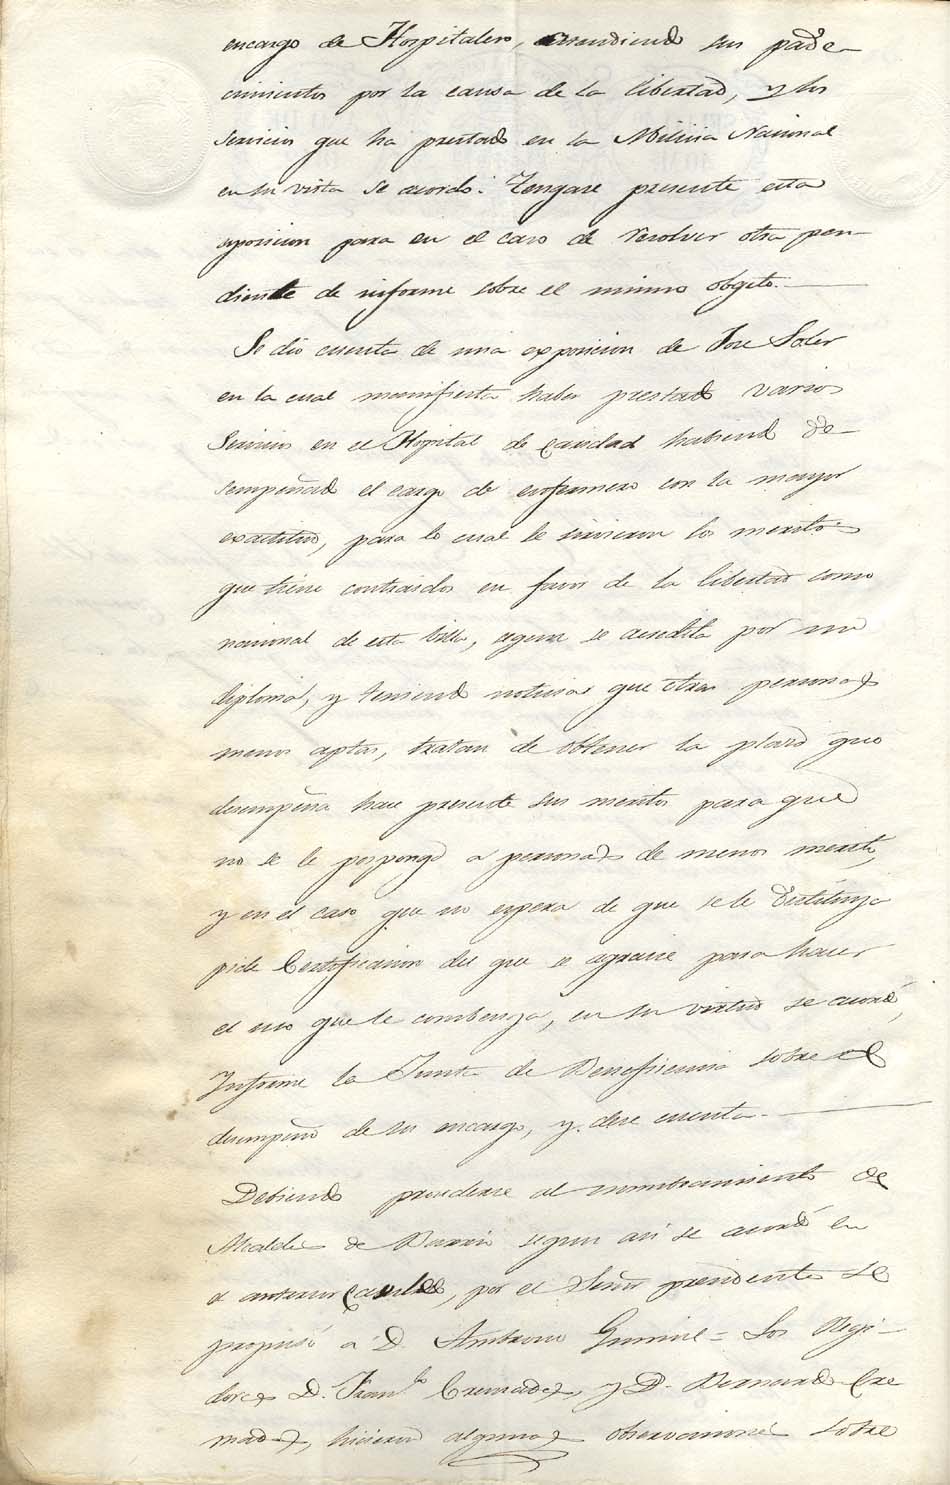 encargo de Hospitalero, atendiendo sus pade-
cimientos por la causa de la libertad, y los
servicios que ha prestado en la Milicia Nacional
en su vista se acordo: Tengase presente esta
esposicion para en el caso de resolver otra pen-
diente de informe sobre el mismo obgeto.
Se dio cuenta de una exposicion de Jose Soler
en la cual manifiesta haber prestado varios
servicios en el Hospital de Caridad habiendo de-
sempeñado el cargo de enfermero con la mayor
exactitud, para lo cual le sirvieron los meritos
que tiene contraidos en favor de la libertad como
nacional de esta Villa, segun se acredita por un
diploma, y teniendo noticias que otras personas
menos aptas, tratan de obtener la plaza que
desempeña hace presente sus meritos para que
no se le posponga a personas de menos merito,
y en el caso que no espera de que se le destituya
pide Certificacion del que se agracie para hacer
el uso que le combenga, en su virtud se acordó,
Informe la Junta de Beneficencia sobre el
desempeño de su encargo, y dese cuenta.
Debiendo procederse al nombramiento de
Alcaldes de Barrio segun asi se acordó en
el anterior Cavildo, por el Señor presidente se
propusó a D. Ambrosio = Los Regi-
dores D. Fran.co Cremades, y D. Bernardo Cre
mades, hicieron algunas observaciones sobre